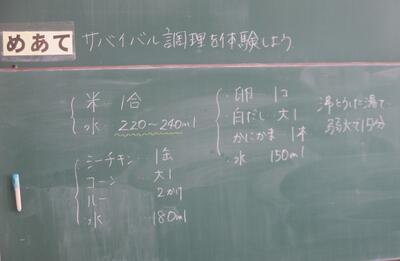 めあて サバイバル調理を体験しよう
米 1合
水 220~240ml
シーチキン 1缶
コーン 大1
ルー 2かけ
水 180ml
卵 1コ
白だし 大1
かにかま 1本
水 150ml
沸とうした湯で
弱火で15分